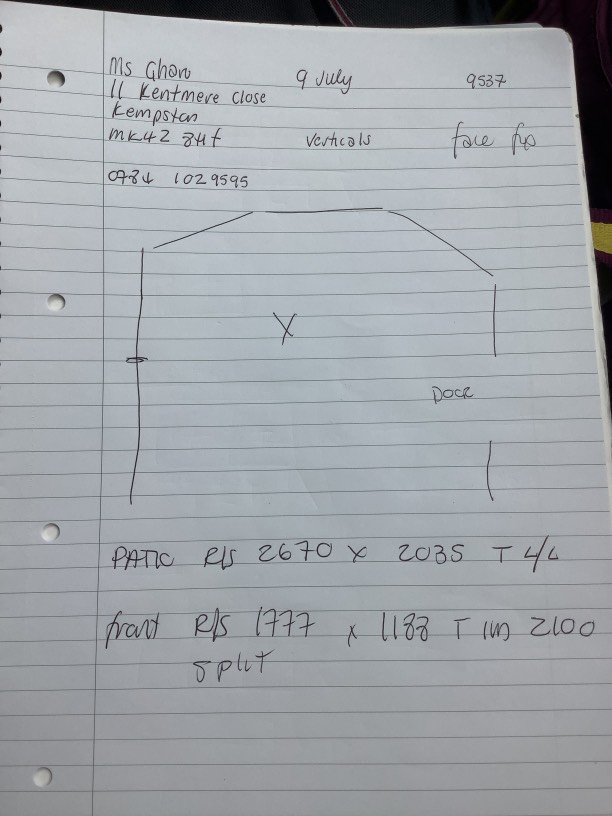 Ms Ghoru 9 July 9537
11 Kentmere Close
Kempston
MK42 8UF Verticals face fix
0784 1029595
X
DOOR
PATIO R/S 2670 X 2035 T 4/4
front R/S 1777 x 1188 T 2100
split